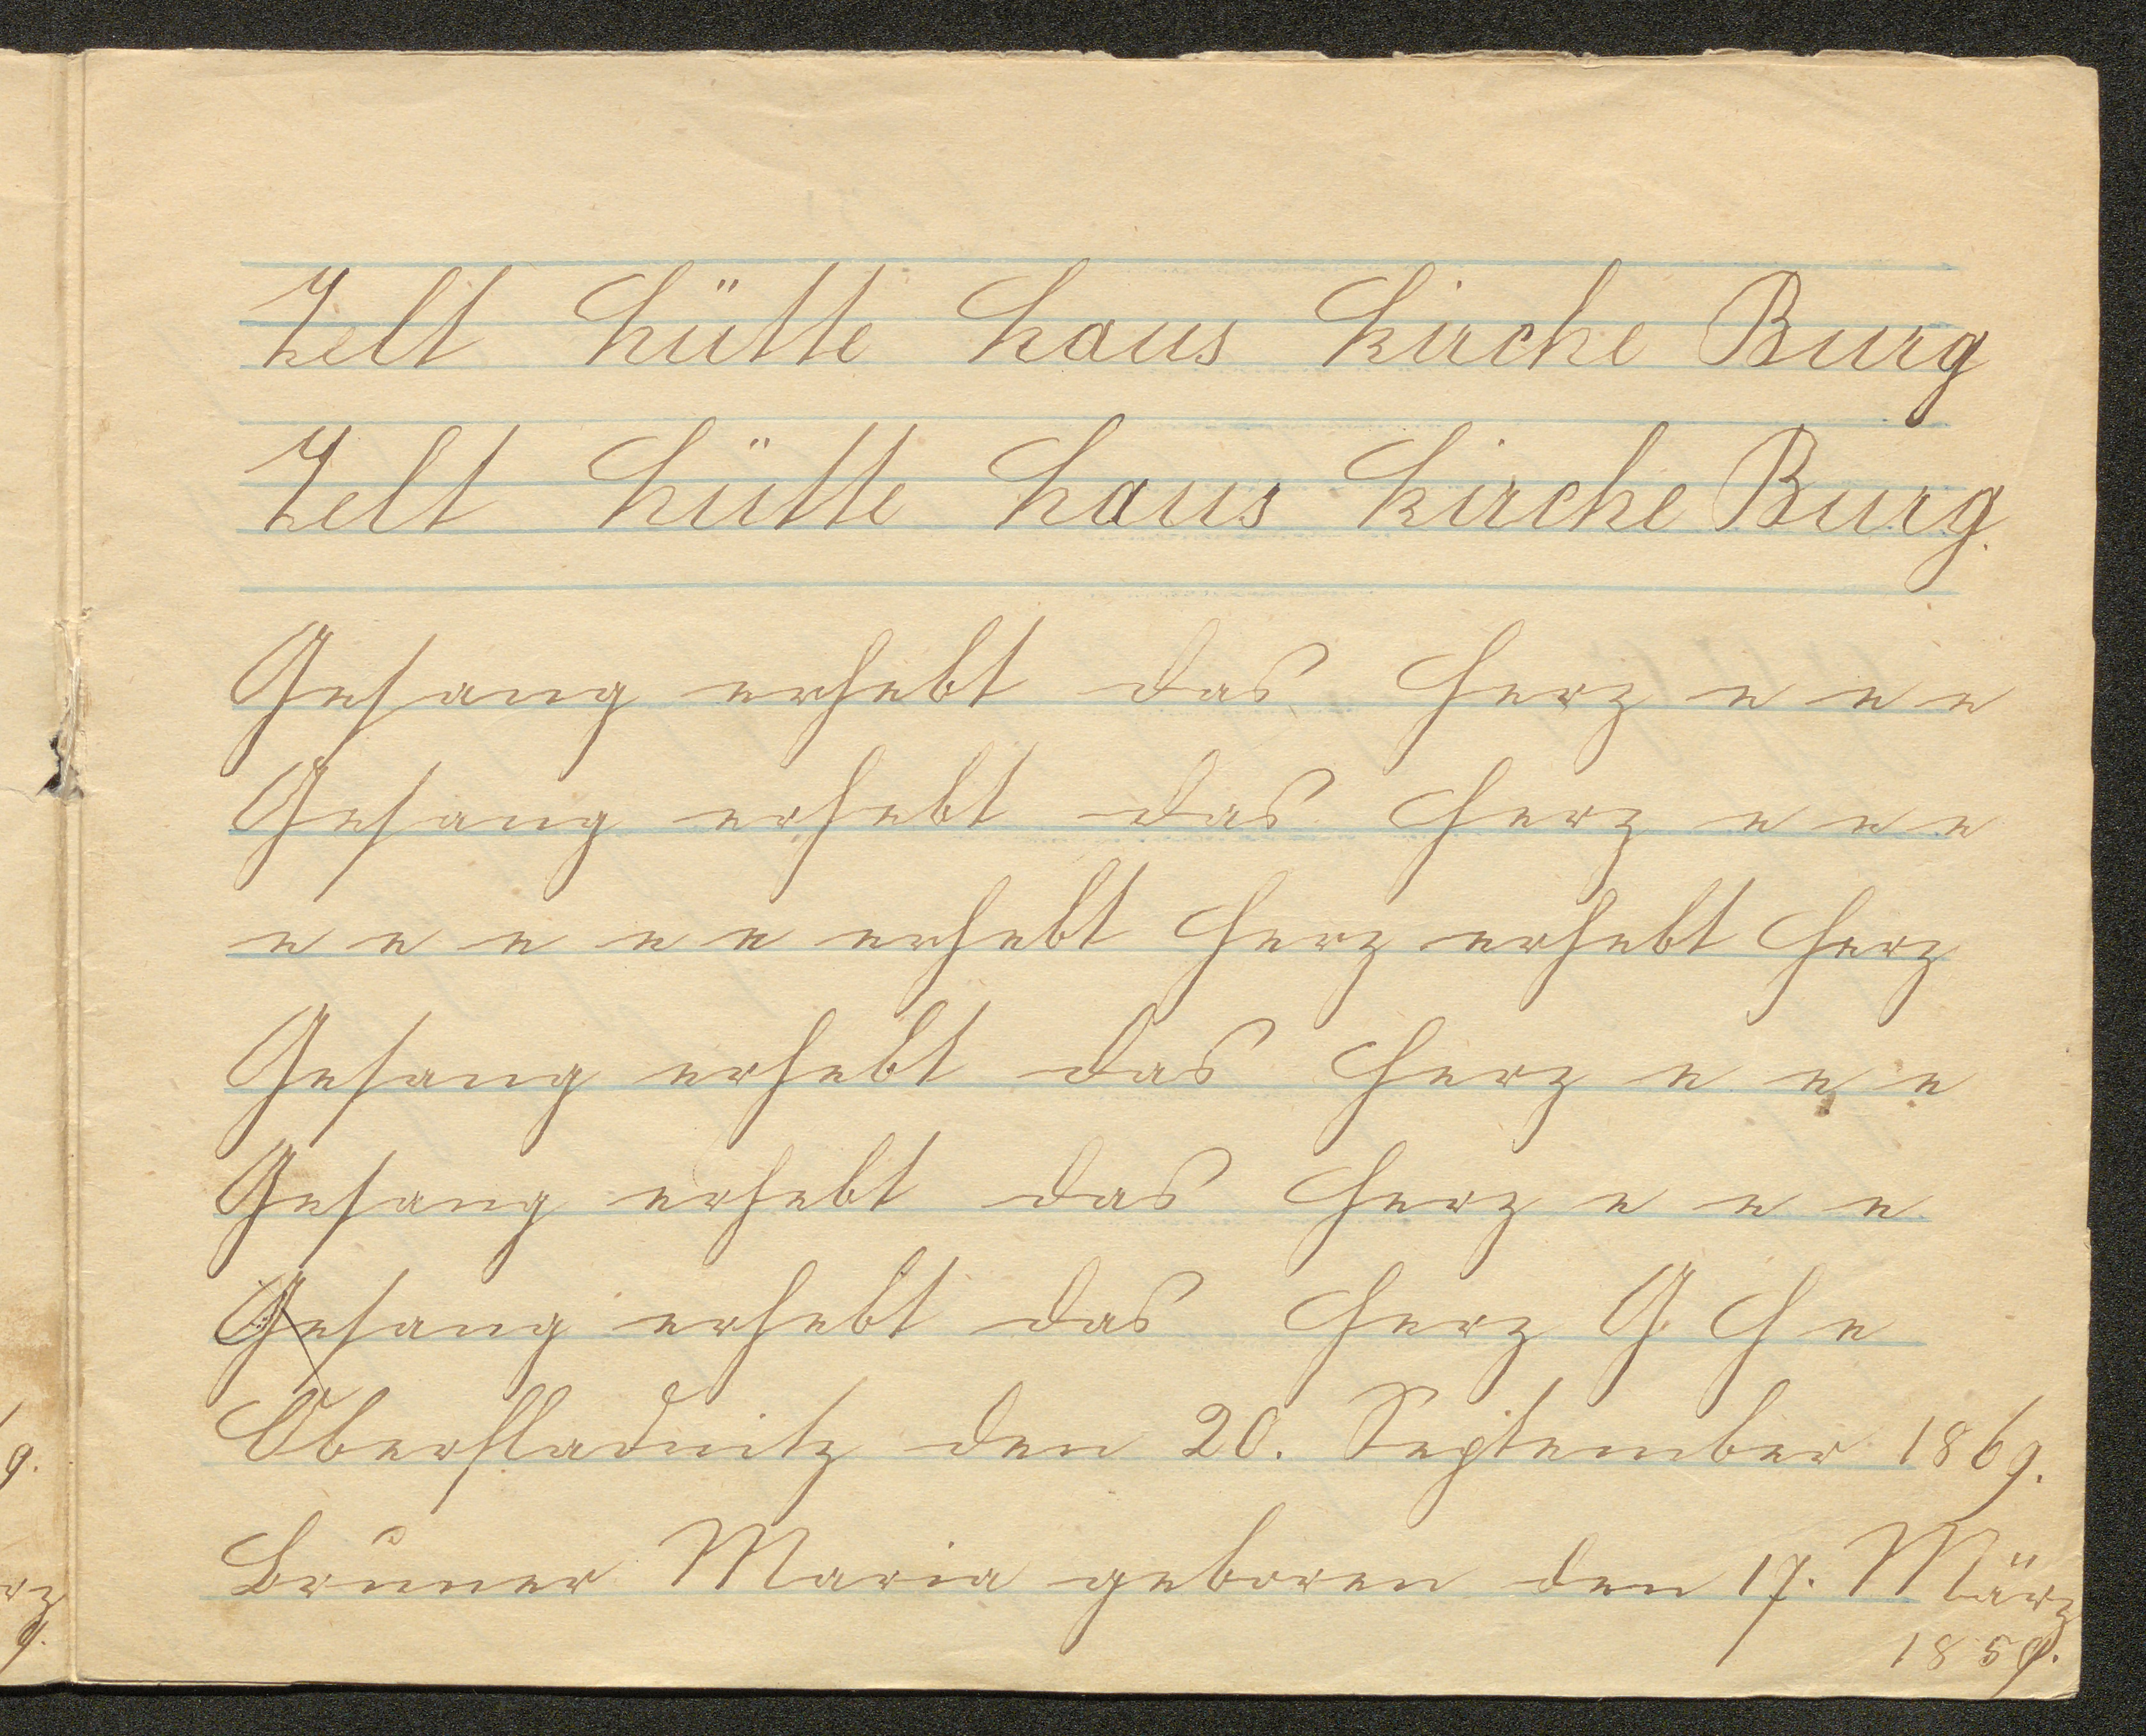 Zelt Hütte Haus Kirche Burg
Zelt Hütte Haus Kirche Burg.
Gesang erhebt das Herz e e e
Gesang erhebt das Herz e e e
e e e e e erhebt Herz erhebt Herz
Gesang erhebt das Herz e e e
Gesang erhebt das Herz e e e
Gesang erhebt das Herz G H e
Oberfladnitz den 20. September 1869.
Bruner Maria geboren den 17. März
1859.